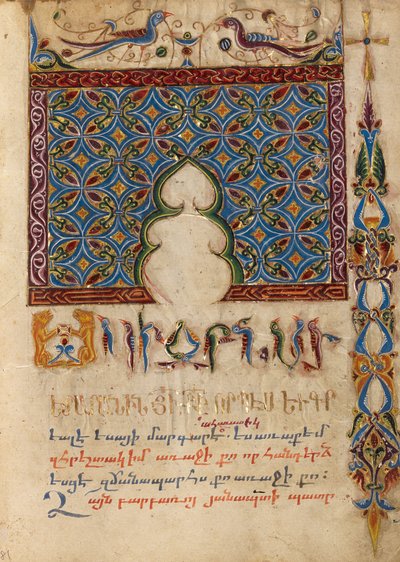 ՍԿԻԶԲՆ ԱՒ
ԵՏԱՐԱՆԻՆ ՅԻ ՔԻ ՈՐՊԷՍ ԵՒ ԳՐ
ահաւասիկ
եալ է եսայի մարգարէ. ես առաքեմ
զհրեշտակ իմ առաջի քո որ հանդերձ
եսցէ զճանապարհս քո առաջի քո:
Ձայն բարբառոյ յանապատի պատր
81